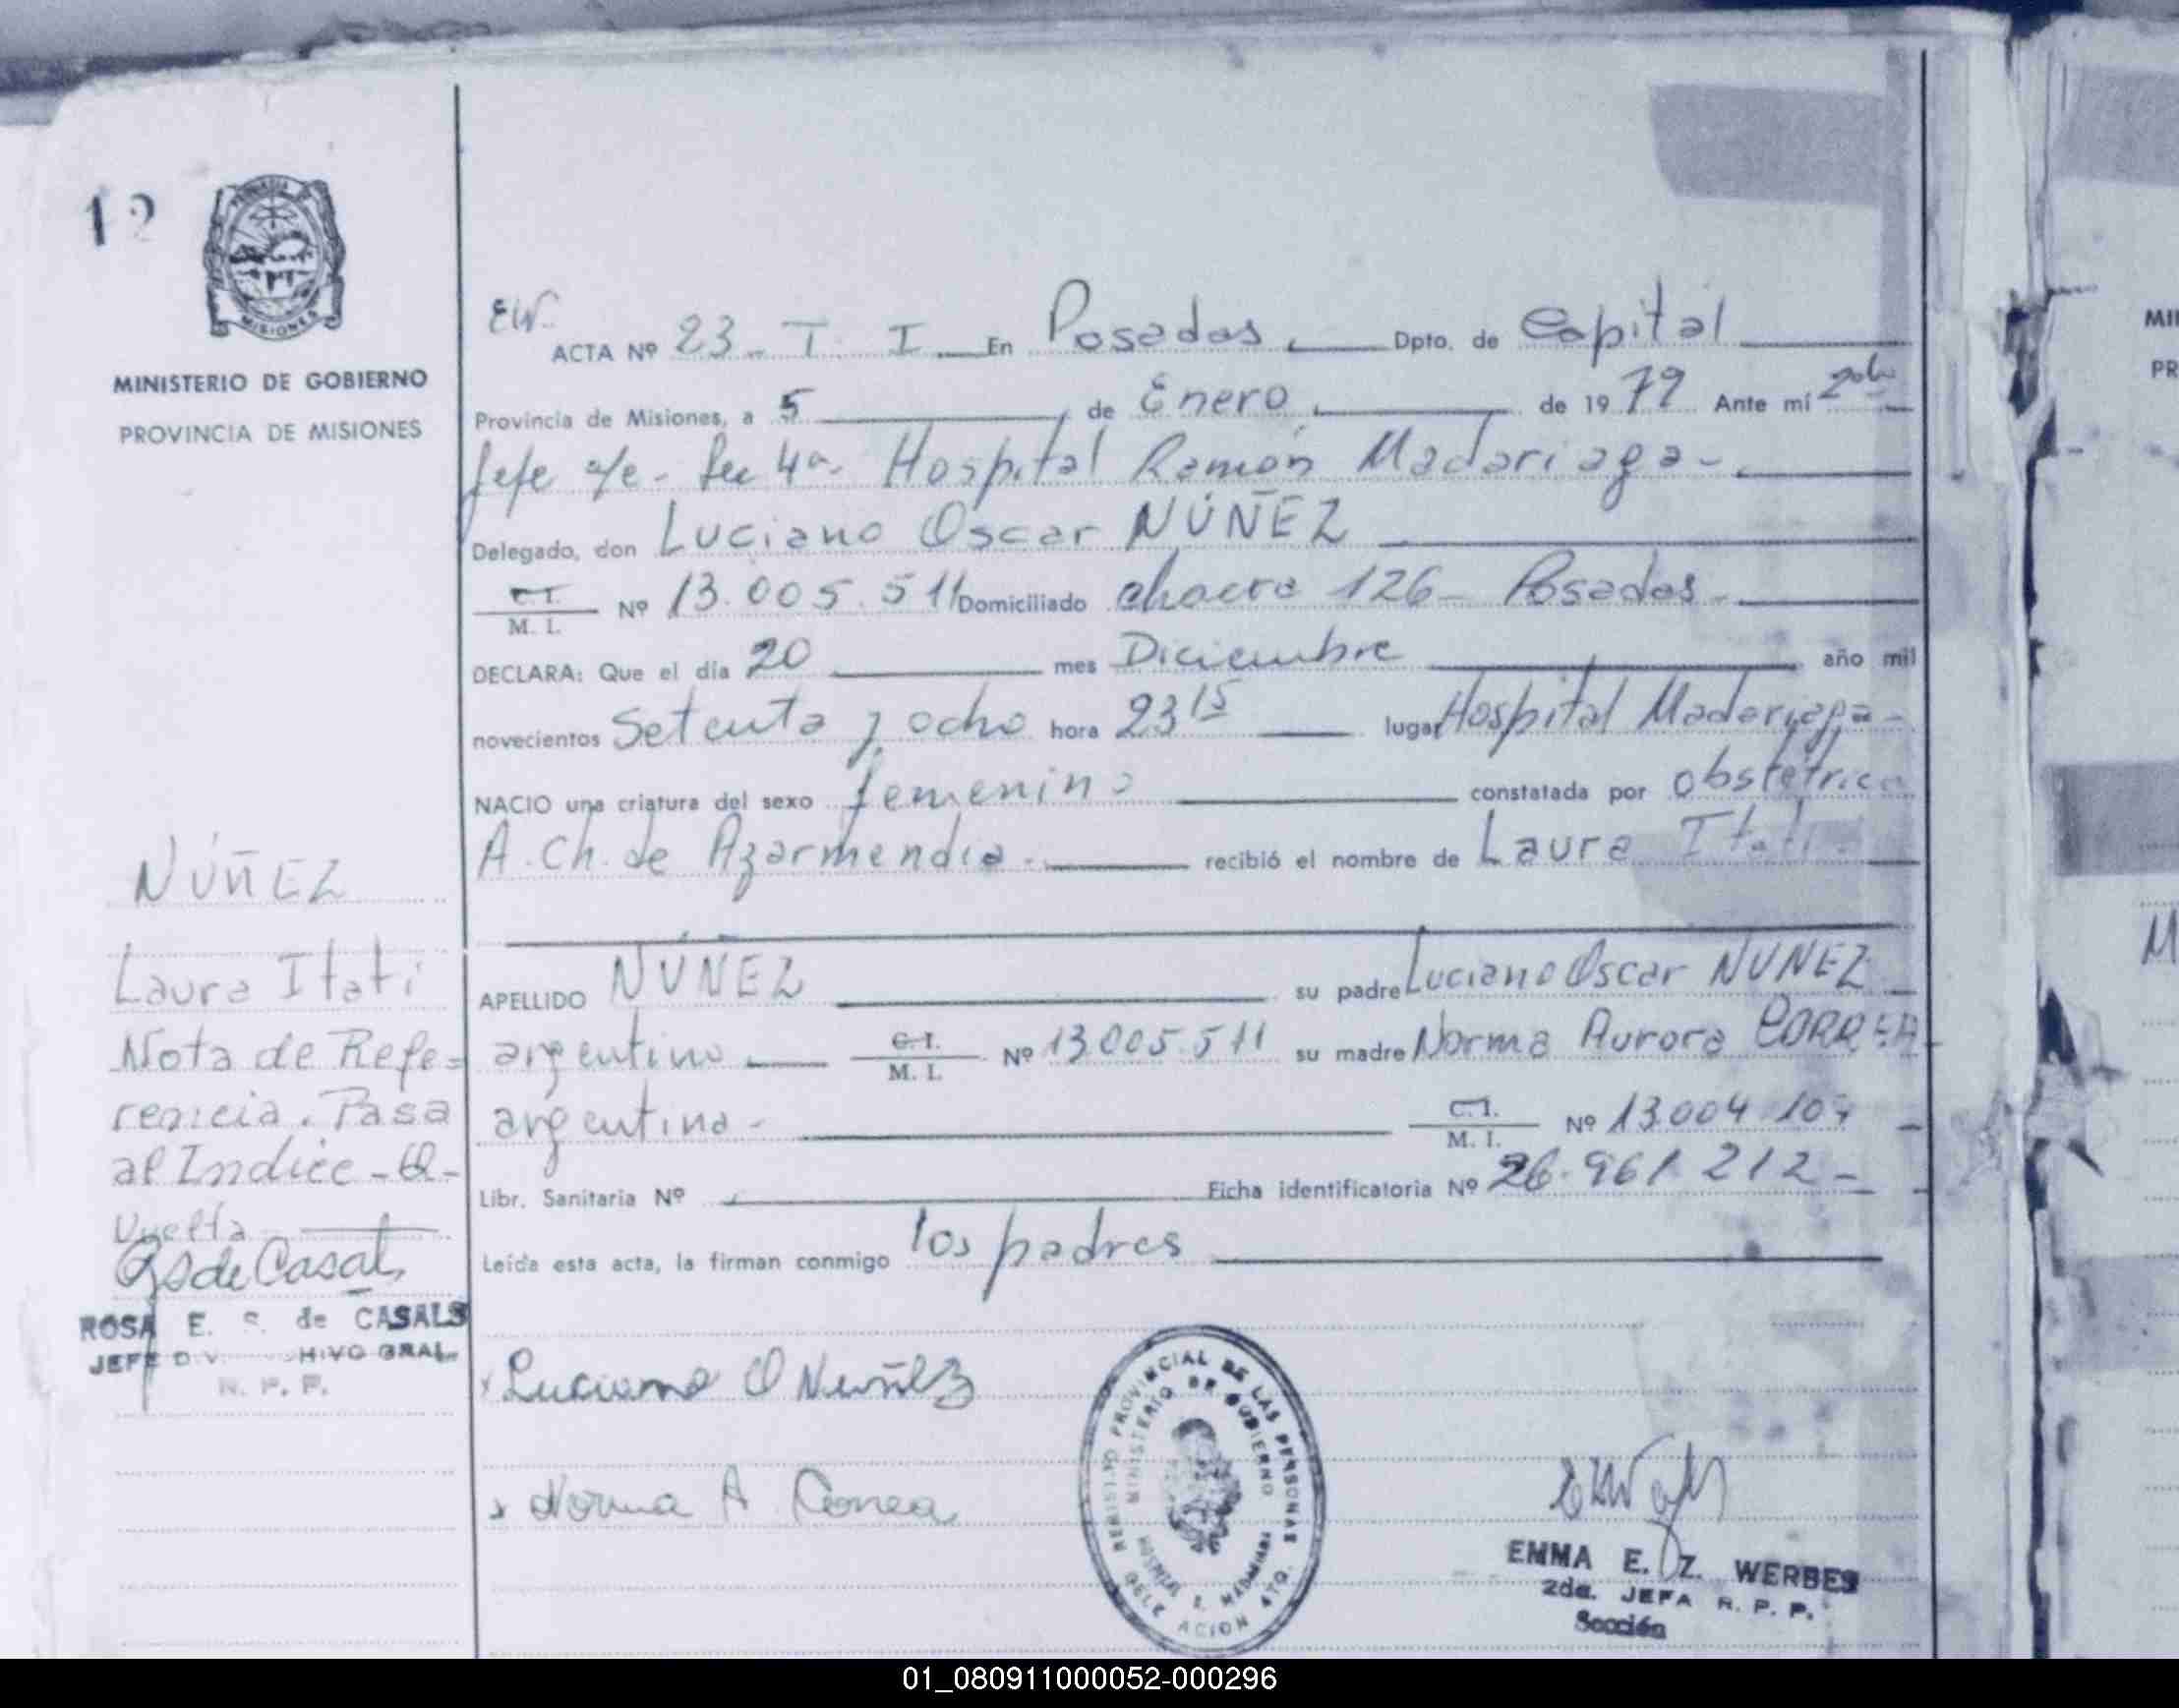 12
MINISTERIO DE GOBIERNO
PROVINCIA DE MISIONES
MISIONES
EW.
ACTA Nº 23 - T. I. En Posadas, Dpto. de Capital
Provincia de Misiones, a 5 de Enero, de 1979 Ante mí
Jefe a/e - Sec 4a. Hospital Ramón Madariaga -
Delegado, don Luciano Oscar NÚÑEZ
C.I. M. I. Nº 13.005.511 Domiciliado chacra 126 - Posadas -
DECLARA: Que el día 20 mes Diciembre año mil
novecientos Setenta y ocho hora 23 15 lugar Hospital Madariaga -
NACIO una criatura del sexo femenino constatada por obstétrica
A. Ch. de Azarmendia - recibió el nombre de Laura Itatí -
APELLIDO NÚÑEZ su padre Luciano Oscar NUÑEZ
argentino C.I. M. I. Nº 13.005.511 su madre Norma Aurora CORREA
argentina - C.I. M. I. Nº 13.004.107 -
Libr. Sanitaria Nº Ficha identificatoria Nº 26.961.212 -
Leída esta acta, la firman conmigo los padres
NÚÑEZ
Laura Itatí
Nota de Refe=
rencia. Pasa
al Indice - a -
Vuelta
RS de Casals
ROSA E. S. de CASALS
JEFE DIV. GRAL.
R. P. P.
x Luciano O Nuñez
x Norma A Correa
REGISTRO PROVINCIAL DE LAS PERSONAS
MINISTERIO DE GOBIERNO
HOSPITAL R. MADARIAGA
DELEGACION 4TA.
EMMA E. Z. WERBES
2da. JEFA R. P. P.
Sección
MI
PR
M
01_080911000052-000296